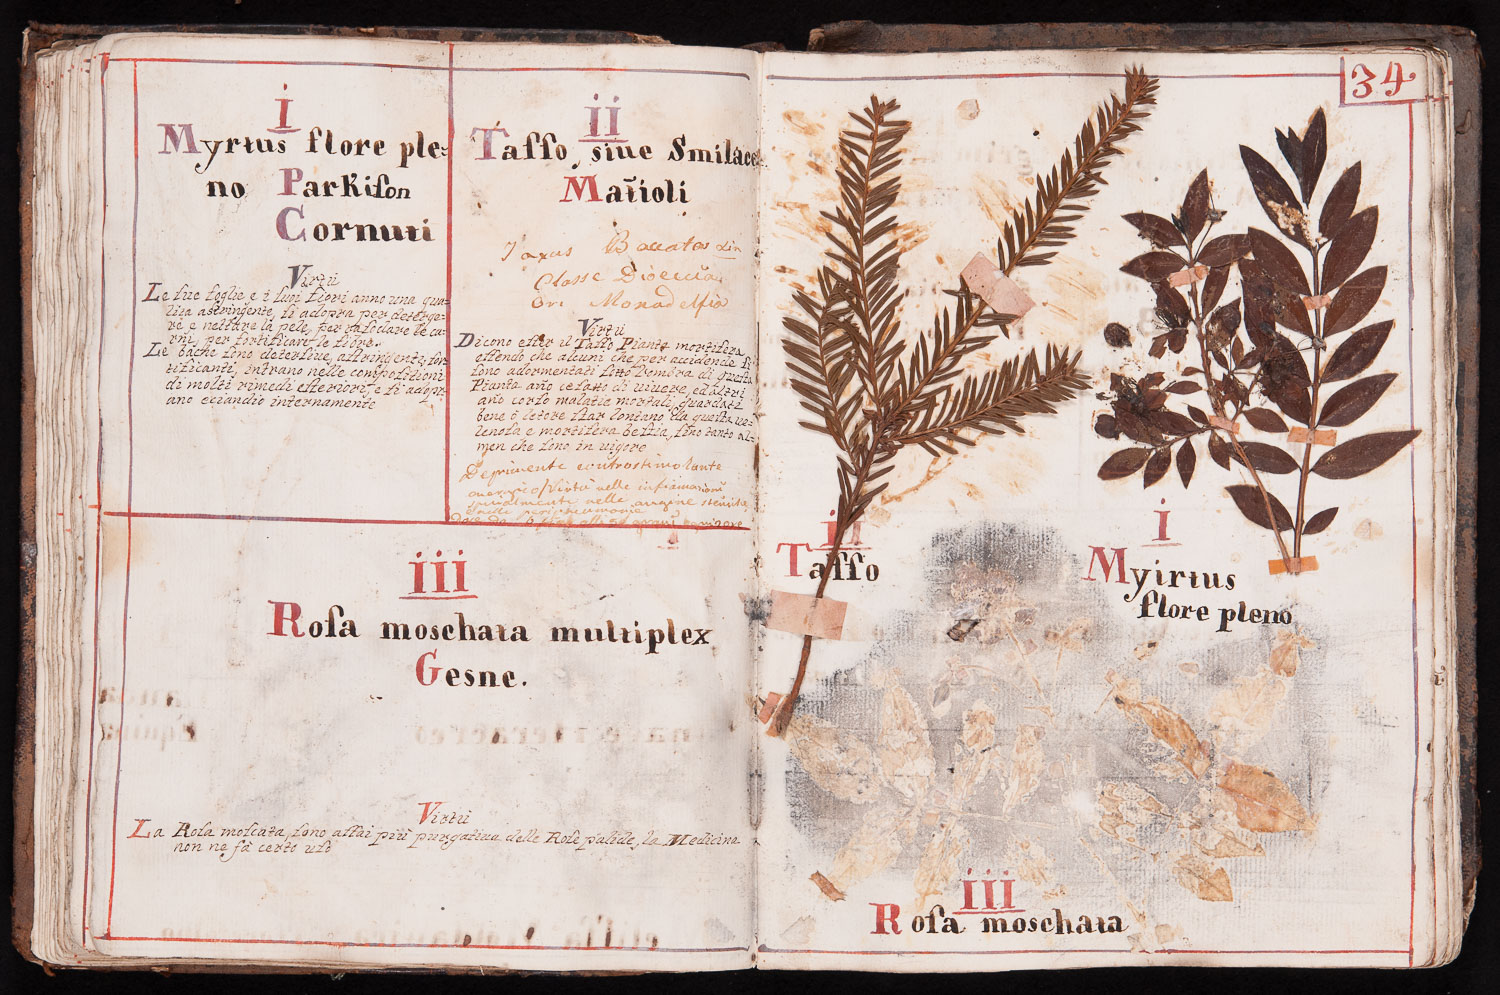 i
Myrtus flore ple=
no Parkiſon
Cornuti
Virtù
Le ſue foglie e i ſuoi fiori anno una qua=
lità aſtringente, ſi adopra per deterge=
re e nettare la pele, per raſciare le ca=
rni, per fortificare le fibre.
Le bache ſono deterſiue, aſtringenti, for=
tificanti, intrano nelle compoſitioni
di molti rimedi eſteriori e ſi adopr=
ano eziandio internamente
ii
Taſſo, siue Smilace
Matioli
Taxus Baccatas Lin
Classe Dioecia
Ori Monadelfia
Virtù
Dicono eſſer il Taſſo Pianta mortifera
eſſendo che alcuni che per accidende ſi
ſono adormentati ſotto l'ombra di queſta
Pianta ano ceſſato di uiuere, ed altri
ano corſo malatie mortali, guardati
bene ò letore ſtar lontano da queſta ve=
lenoſa e mortifera beſtia, ſono tanto al=
men che ſono in uigore
Deprimente controstimolante
energico / Virtù nelle infiamazioni
nelle angine
nelle
iii
Roſa moschata multiplex
Gesne.
Virtù
La Roſa moſcata, ſono aſſai più purgatiua delle Roſe palide, la Medicina
non ne fà certo uſo
34
ii
Taſſo
i
Myirtus
flore pleno
iii
Roſa moschata